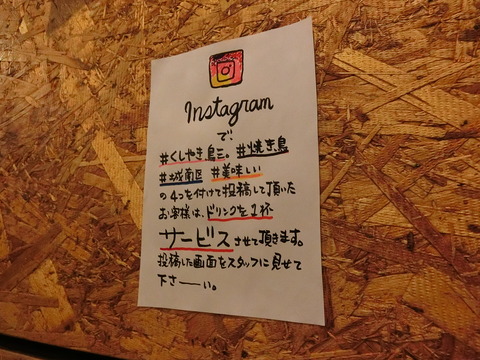 Instagram
で!
#くしやき鳥三。 #焼き鳥
#城南区 #美味しい
の4つを付けて投稿して頂いた
お客様は、ドリンクを1杯
サービスさせて頂きます。
投稿した画面をスタッフに見せて
下さーーい。